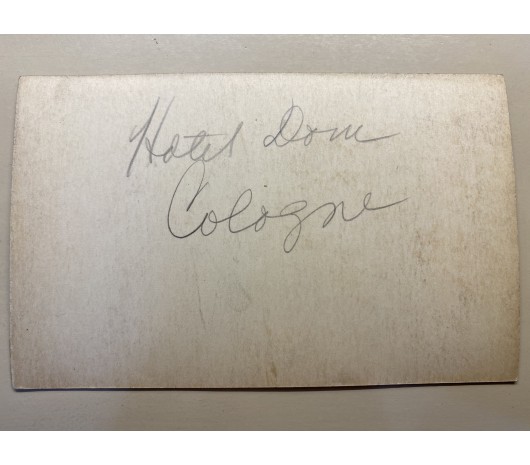 Hotel Dom
Cologne